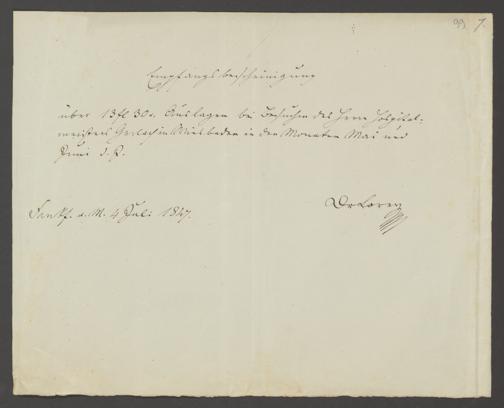 99 7.
Empfangsbescheinigung
über 13 fl 30 x. Auslagen bei Besuchen des Herrn Hospital-
meisters Gerlach in Wiesbaden in den Monaten Mai und
Juni d. J.
Frankf. a. M. 4 Juli 1847.
Dr Lorey